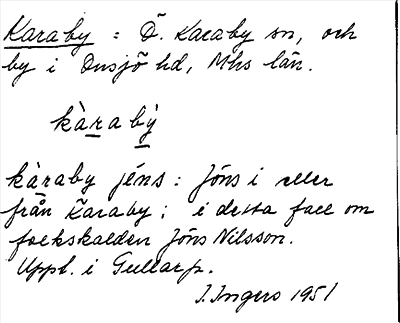 Karaby : Ö. Karaby sn, och
by i Onsjö hd, Mhs län.
kàraby̆
kàraby jéns : Jöns i eller
från Karaby; i detta fall om
folkskalden Jöns Nilsson.
Uppt. i Gullarp.
I. Ingers 1951